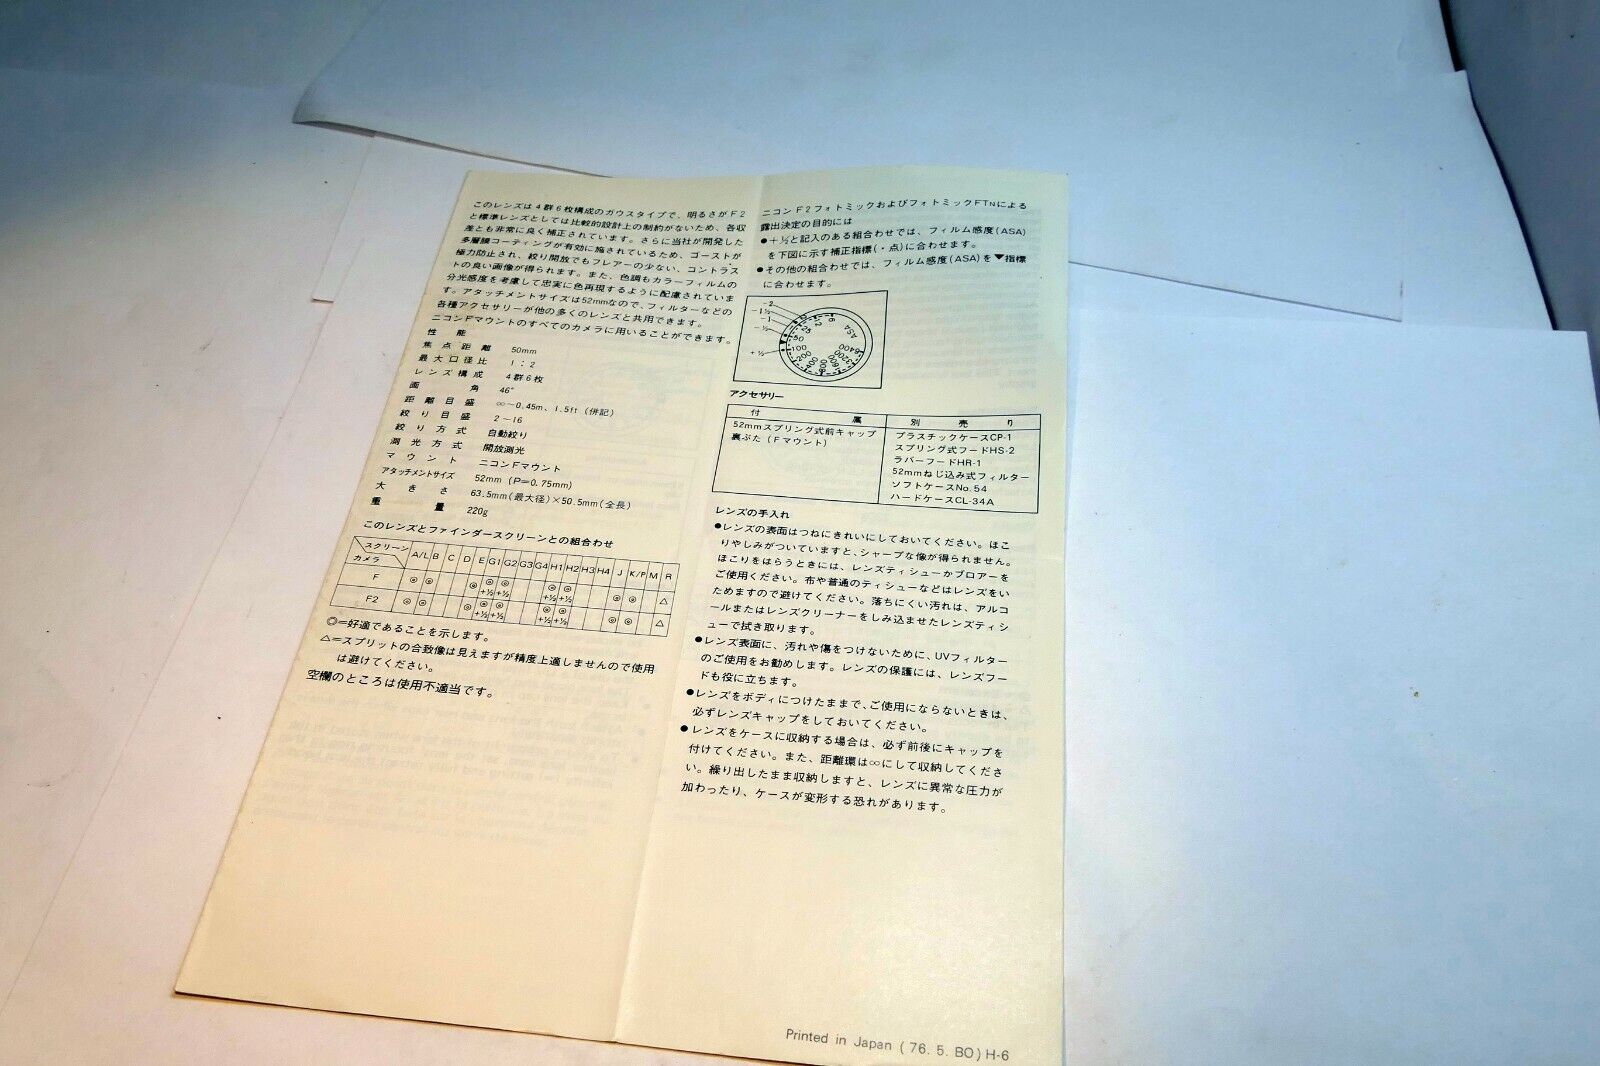 このレンズは4群6枚構成のガウスタイプで、明るさがF2
と標準レンズとしては比較的設計上の制約がないため、各収
差とも非常に良く補正されています。さらに当社が開発した
多層膜コーティングが有効に施されているため、ゴーストが
極力防止され、絞り開放でもフレアーの少ない、コントラス
トの良い画像が得られます。また、色調もカラーフィルムの
分光感度を考慮して忠実に色再現するように配慮されていま
す。アタッチメントサイズは52mmなので、フィルターなどの
各種アクセサリーが他の多くのレンズと共用できます。
ニコンFマウントのすべてのカメラに用いることができます。
性能
焦点距離 50mm
最大口径比 1:2
レンズ構成 4群6枚
画角 46°
距離目盛 ∞〜0.45m、1.5ft (併記)
絞り目盛 2−16
絞り方式 自動絞り
測光方式 開放測光
マウント ニコンFマウント
アタッチメントサイズ 52mm (P=0.75mm)
大きさ 63.5mm(最大径)×50.5mm(全長)
重量 220g
このレンズとファインダースクリーンとの組合わせ
スクリーン A/L B C D E G1 G2 G3 G4 H1 H2 H3 H4 J K/P M R
カメラ
F ◎ ◎ ◎ ◎ ◎ ◎ ◎ ◎ ◎ ◎ △
+½ +½ +½ +½
F2 ◎ ◎ ◎ ◎ ◎ ◎ ◎ ◎ ◎ △
+½ +½ +½ +½
◎=好適であることを示します。
△=スプリットの合致像は見えますが精度上適しませんので使用
は避けてください。
空欄のところは使用不適当です。
ニコンF2フォトミックおよびフォトミックFTNによる
露出決定の目的には
●+½と記入のある組合わせでは、フィルム感度(ASA)
を下図に示す補正指標(・点)に合わせます。
●その他の組合わせでは、フィルム感度(ASA)を▼指標
に合わせます。
−2
−1½
−1
−½
+½
ASA 6 12 25 50 100 200 400 800 1600 3200 6400
アクセサリー
付属 別売り
52mmスプリング式前キャップ プラスチックケースCP-1
裏ぶた (Fマウント) スプリング式フードHS-2
ラバーフードHR-1
52mmねじ込み式フィルター
ソフトケースNo.54
ハードケースCL-34A
レンズの手入れ
●レンズの表面はつねにきれいにしておいてください。ほこ
りやしみがついていますと、シャープな像が得られません。
ほこりをはらうときには、レンズティシューかブロアーを
ご使用ください。布や普通のティシューなどはレンズをい
ためますので避けてください。落ちにくい汚れは、アルコ
ールまたはレンズクリーナーをしみ込ませたレンズティシ
ューで拭き取ります。
●レンズ表面に、汚れや傷をつけないために、UVフィルター
のご使用をお勧めします。レンズの保護には、レンズフー
ドも役に立ちます。
●レンズをボディにつけたままで、ご使用にならないときは、
必ずレンズキャップをしておいてください。
●レンズをケースに収納する場合は、必ず前後にキャップを
付けてください。また、距離環は∞にして収納してくださ
い。繰り出したまま収納しますと、レンズに異常な圧力が
加わったり、ケースが変形する恐れがあります。
Printed in Japan (76. 5. BO) H-6